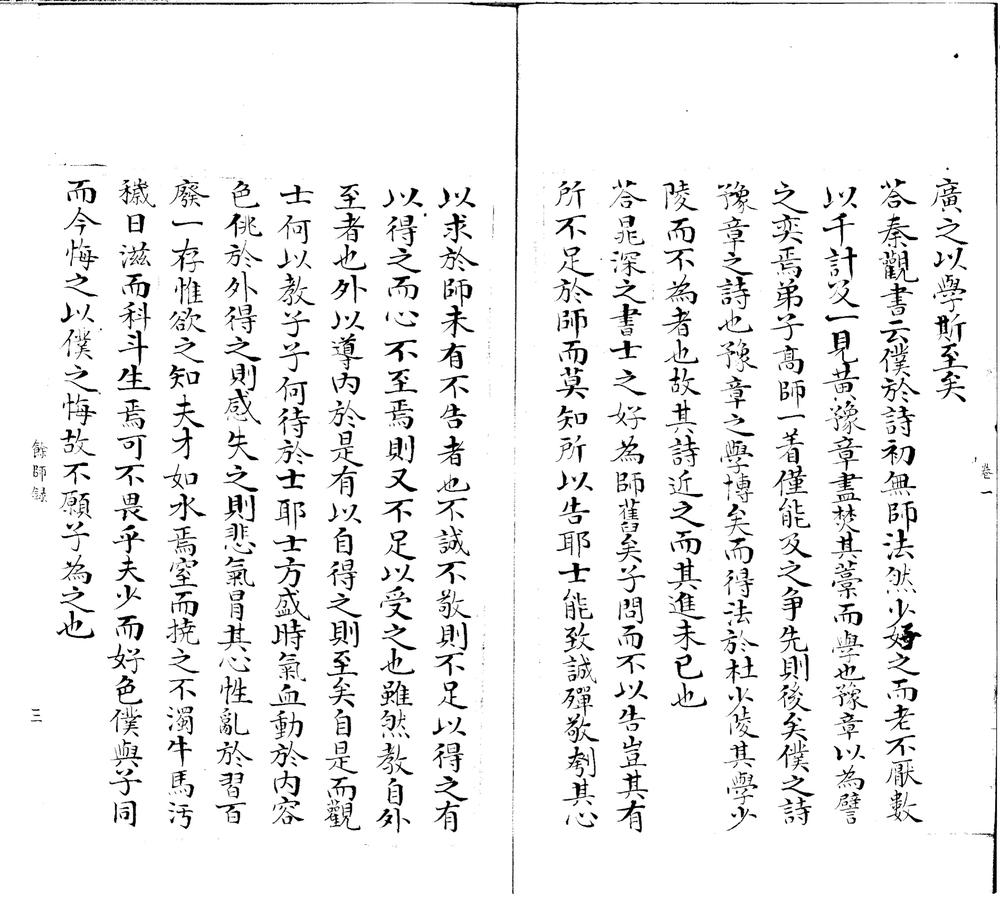 廣之以學斯至矣
荅秦觀書云僕於詩初無師法然少好之而老不厭數
以千計及一見黃豫章盡焚其藁而學也豫章以為譬
之奕焉弟子高師一著僅能及之争先則後矣僕之詩
豫章之詩也豫章之學博矣而得法於杜少陵其學少
陵而不為者也故其詩近之而其進未已也
荅晁深之書士之好為師舊矣子問而不以告豈其有
所不足於師而莫知所以告耶士能致誠殫敬刳其心
卷一
以求於師未有不告者也不誠不敬則不足以得之有
以得之而心不至焉則又不足以受之也雖然教自外
至者也外以導內於是有以自得之則至矣自是而觀
士何以教子子何待於士耶士方盛時氣血動於內容
色佻於外得之則感失之則悲氣冒其心性亂於習百
廢一存惟欲之知夫才如水焉窒而撓之不濁牛馬汚
穢日滋而科斗生焉可不畏乎夫少而好色僕與子同
而今悔之以僕之悔故不願子為之也
餘師錄
三